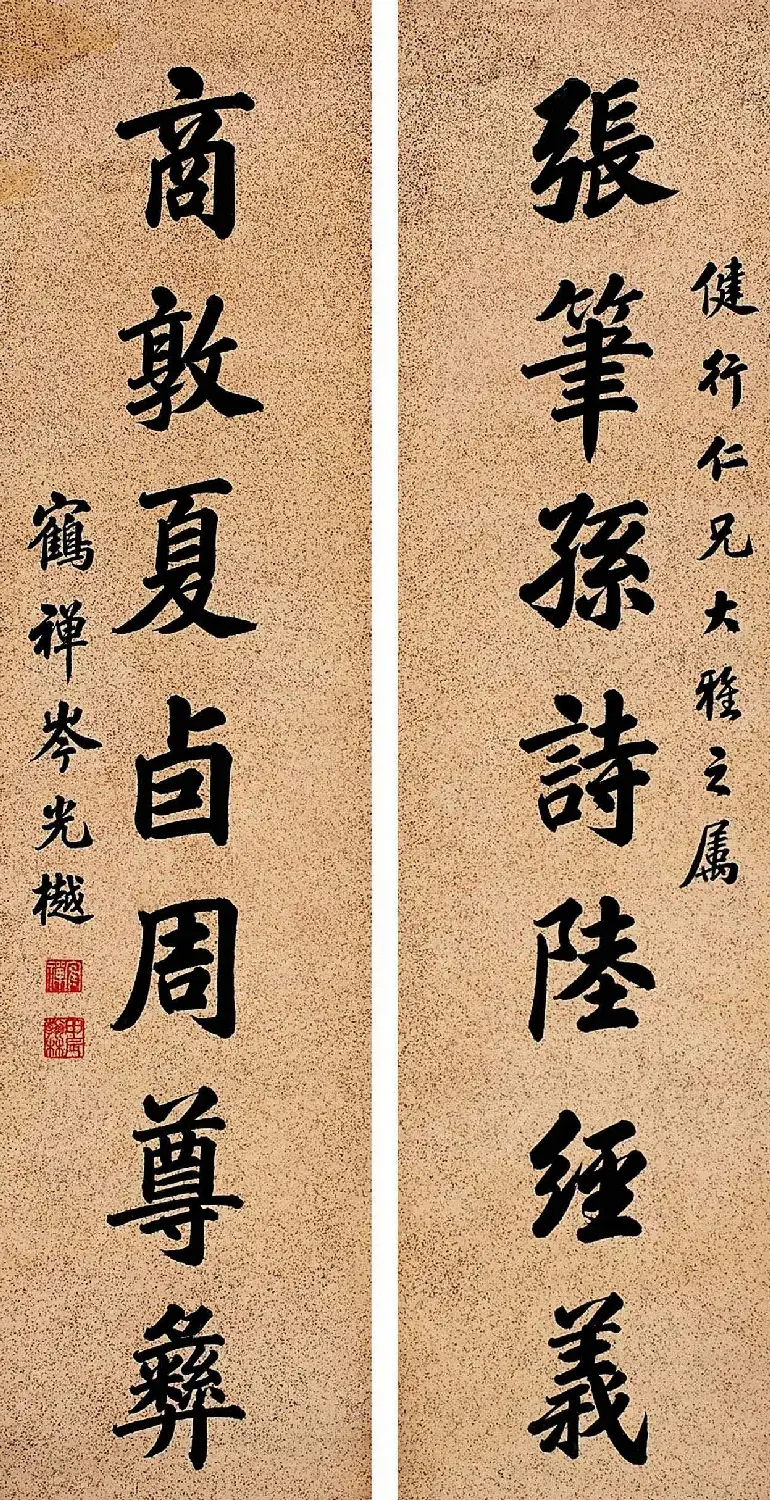 健行仁兄大雅之属
張筆孫詩陸經義
商敦夏卣周尊彝
鶴禅岑光樾